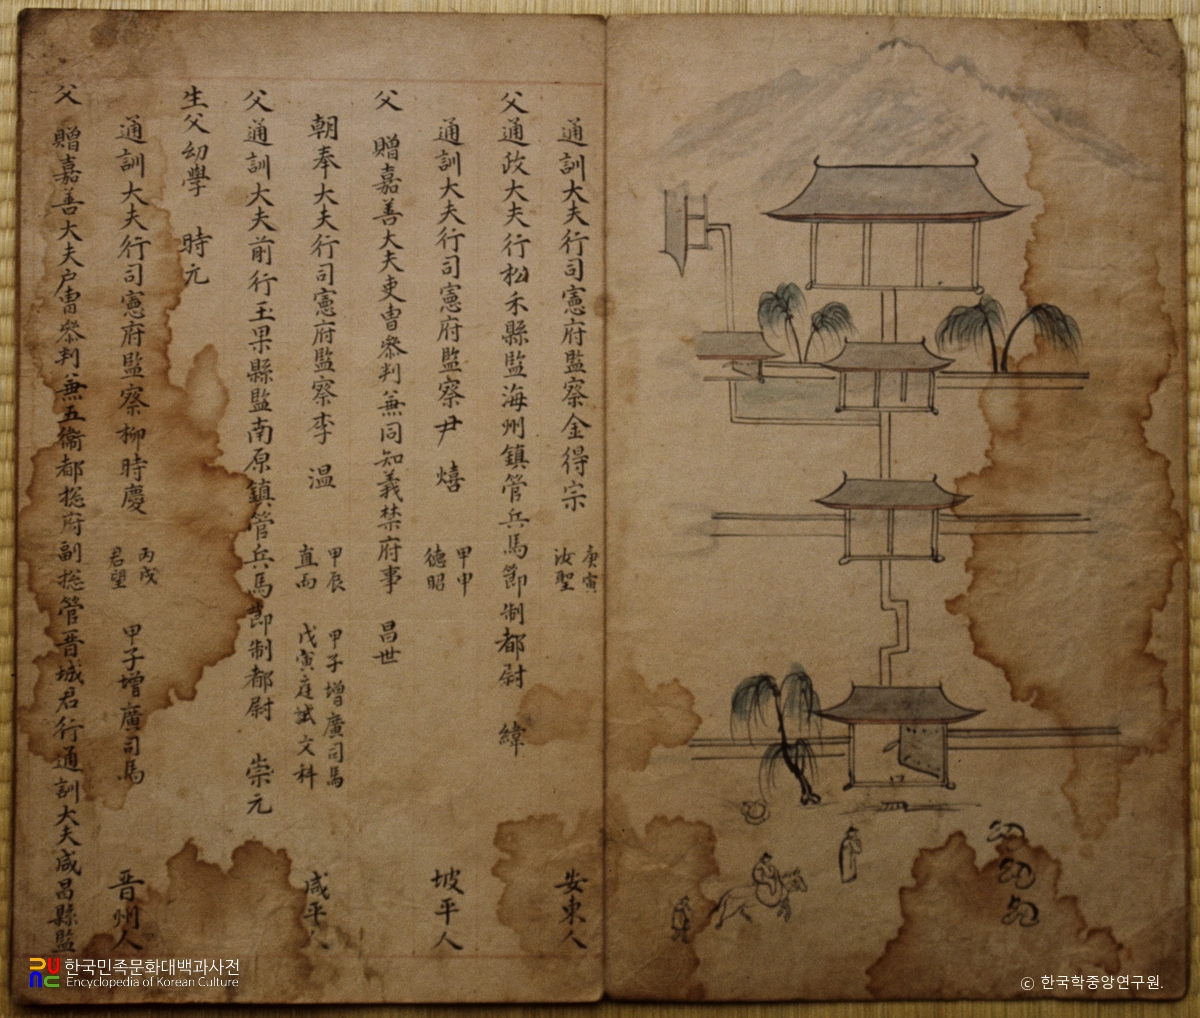 通訓大夫行司憲府監察金得宗 庚寅 汝聖 安東人
父通政大夫行松禾縣監海州鎮管兵馬節制都尉 緯
通訓大夫行司憲府監察尹 熺 甲申 德昭 坡平人
父 贈嘉善大夫吏曹叅判兼同知義禁府事 昌世
朝奉大夫行司憲府監察李 溫 甲辰 直而 甲子增廣司馬 戊寅庭試文科 咸平人
父通訓大夫前行玉果縣監南原鎮管兵馬節制都尉 崇元
生父幼學 時元
通訓大夫行司憲府監察柳時慶 丙戌 君望 甲子增廣司馬 晋州人
父 贈嘉善大夫戶曹叅判兼五衛都揔府副揔管晋城君行通訓大夫咸昌縣監
한국민족문화대백과사전
Encyclopedia of Korean Culture
ⓒ 한국학중앙연구원.